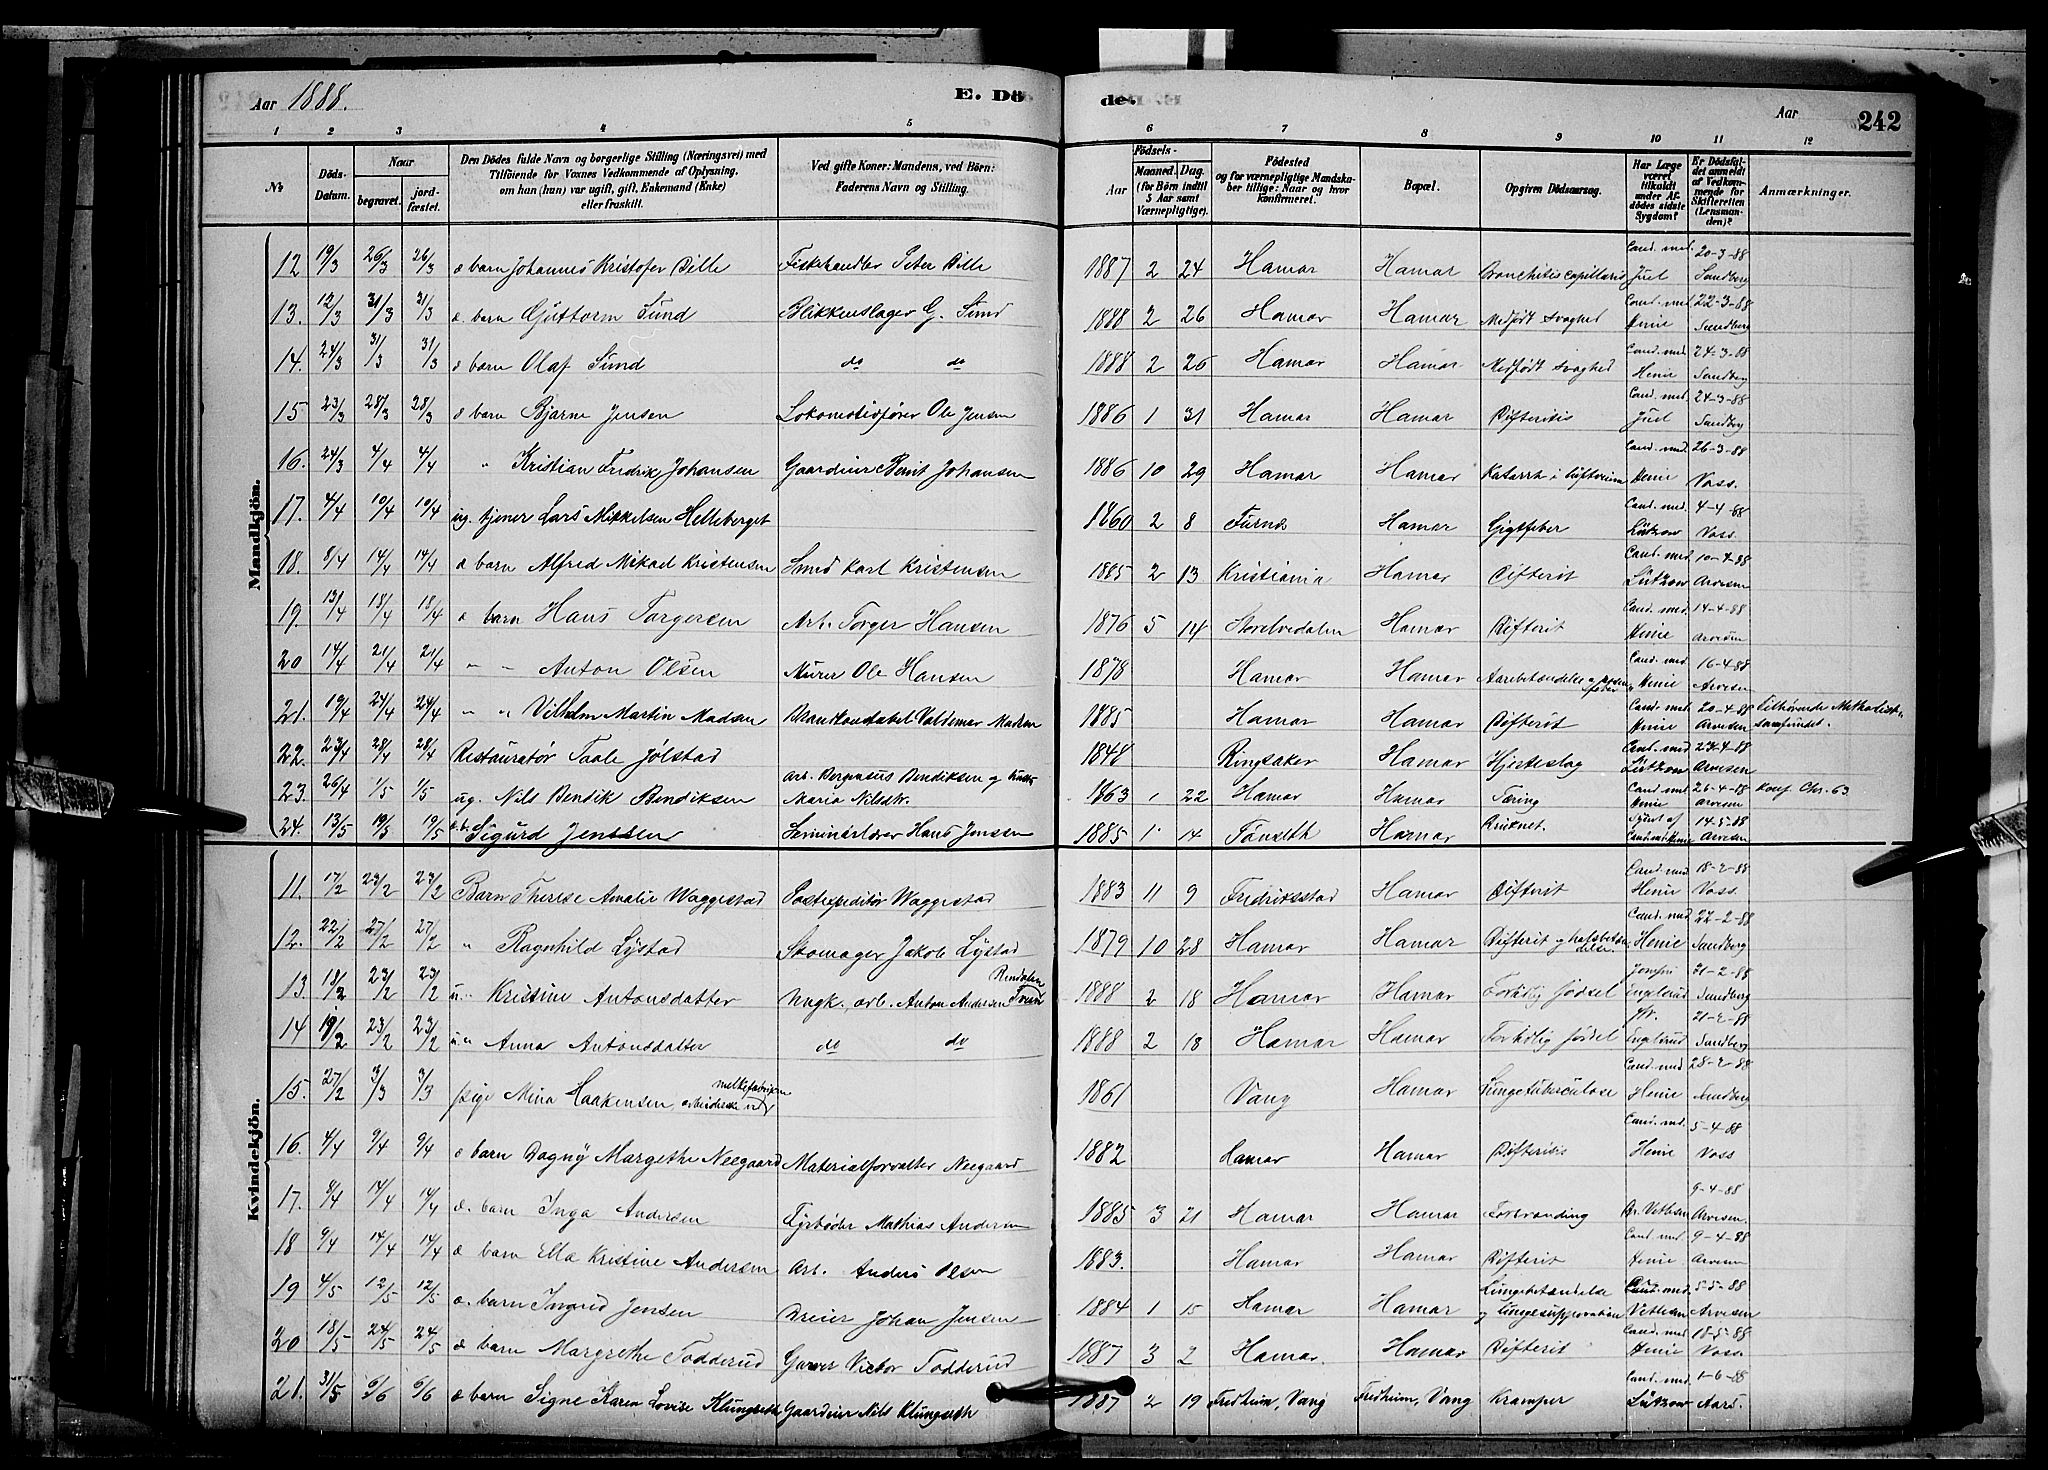 Aar 1888. E. Dö de. Aar 242
1 2 3 4 5 6 7 8 9 10 11 12
No Döds-Datum. Naar begravet. jord-fæstet. Den Dödes fulde Navn og borgerlige Stilling (Næringsvei) med Tilföiende for Voxnes Vedkommende af Oplysning, om han (hun) var ugift, gift, Enkemand (Enke) eller fraskilt. Ved gifte Koner: Mandens, ved Börn: Faderens Navn og Stilling. Födsels- Aar Maaned. Dag. (for Börn indtil 5 Aar samt Værnepligtige). Födested og for værnepligtige Mandskaber tillige: Naar og hvor konfirmeret. Bopæl. Opgiven Dödsaarsag. Har Læge været tilkaldt under Afdödes sidste Sygdom? Er Dödsfaldet anmeldt af Vedkommende for Skifteretten (Lensmanden)? Anmærkninger.
Mandkjön.
12 19/3 26/3 26/3 æ barn Johannes Kristofer Bille Fiskehandler Peter Bille 1887 2 24 Hamar Hamar Bronchitis capillaris Cand. med. Juel 20-3-88 Sandberg
13. 12/3 31/3 31/3 æ. barn Guttorm Sund Blikkenslager G. Sund 1888 2 26 Hamar Hamar Medfödt svaghed Cand. med Henie 22-3-88 Sandberg
14. 24/3 31/3 31/3 æ barn Olaf Sund do do 1888 2 26 Hamar Hamar Medfödt svaghed Cand. med Henie 24-3-88 Sandberg
15 23/3 28/3 28/3 æ barn Bjarne Jensen Lokomotivförer Ole Jensen 1886 1 31 Hamar Hamar Difteritis Cand. med Juel 24-3-88 Sandberg
16. 24/3 4/4 4/4 " Kristian Fredrik Johansen Gaardeier Bernt Johansen 1886 10 29 Hamar Hamar Katarrh i Cand. med Henie 26-3-88 Voss.
17. 4/4 10/4 10/4 ug. tjener Lars Mikkelsen Helleberget 1860 2 8 Furnes Hamar Gigtfeber Cand. med Lützow 4-4-88 Voss.
18. 8/4 14/4 14/4 æ barn Alfred Mikael Kristensen Smed Karl Kristensen 1885 2 13 Kristiania Hamar Difterit Cand. med Lützow 10-4-88 Arvesen
19. 13/4 18/4 18/4 æ barn Hans Torgersen Arb. Torger Hansen 1876 5 14 Storelvedalen Hamar Difterit Cand. med. Henie 14-4-88 Arvesen
20 14/4 21/4 21/4 " " Anton Olsen Murer Ole Hansen 1878 Hamar Hamar Cand. med. Henie 16-4-88 Arvesen
21. 19/4 24/4 24/4 " " Vilhelm Martin Madsen Brandkonstabel Valdemar Madsen 1885 Hamar Hamar Difterit Cand. med Henie 20-4-88 Arvesen Tilhørende Methodistsamfundet.
22. 23/4 28/4 28/4 Restauratør Taale Jølstad 1848 Ringsaker Hamar Hjerteslag Cand. med Lützow 24-4-88 Arvesen
23. 26/4 1/5 1/5 ug. Nils Bendik Bendiksen Arb. Bergensus Bendiksen og hustr. Maria Nilsdtr. 1863 1 22 Hamar Hamar Tæring Cand. med Henie 26-4-88 Arvesen Konf. Chr. 63
24. 13/5 19/5 19/5 æ.b. Sigurd Jenssen Seminarlærer Hans Jenssen 1885 1 14 Tönseth Hamar Druknet. Synet af Cand. med Henie 14-5-88 Arvesen
Kvindekjön.
11. 17/2 23/2 23/2 Barn Therese Amalie Waggestad Postexpeditör Waggestad 1883 11 9 Fredriksstad Hamar Difterit Cand. med Henie 18-2-88 Voss.
12. 22/2 27/2 27/2 " Ragnhild Lystad Skomager Jakob Lystad 1879 10 28 Hamar Hamar Difterit og halsbetændelse. Cand. med Henie 22-2-88 Sandberg
13. 18/2 23/2 23/2 u." Kristine Antonsdatter Ungk., arb. Anton Andersen Rendalen 1888 2 18 Hamar Hamar Fortidlig födsel Jomfru Englerud 21-2-88 Sandberg
14 19/2 23/2 23/2 u." Anna Antonsdatter do do 1888 2 18 Hamar Hamar Fortidlig födsel Jfr. Englerud 21-2-88 Sandberg
15. 27/2 3/3 3/3 pige Mina Haakensen, arbeiderske ved melkefabriken 1861 Vang Hamar Lungetuberculose Cand. med Henie 28-2-88 Sandberg
16. 4/4 9/4 9/4 æ barn Dagny Margethe Neegaard Materialforvalter Neegaard 1882 Hamar Hamar Difteritis Cand. med. Henie 5-4-88 Voss
17. 8/4 14/4 14/4 æ. barn Inga Andersen Fyrböder Mathias Andersen 1885 3 21 Hamar Hamar Forbrænding Dr. Vethesen 9-4-88 Arvesen.
18 9/4 14/4 14/4 æ barn Ella Kristine Andersen Arb. Anders Olsen 1883. Hamar Hamar Difterit Cand. med. Henie 9-4-88 Arvesen
19 4/5 12/5 12/5 æ. barn Ingrid Jensen Dreier Johan Jensen 1884 1 15 Hamar Hamar Lungebetændelse og lungesuppuration Cand. med. Vethesen 5-5-88 Arvesen
20 18/5 24/5 24/5 æ barn Margrethe Todderud Garver Victor Todderud 1887 3 2 Hamar. Hamar Difterit Cand. med. Henie 18-5-88 Voss.
21. 31/5 6/6 6/6 æ barn Signe Karen Lovise Klungseth Gaardeier Nils Klungseth 1887 2 19 Fredheim, Vang Fredheim, Vang Kramper Cand. med. Lützow 1-6-88 Aars.